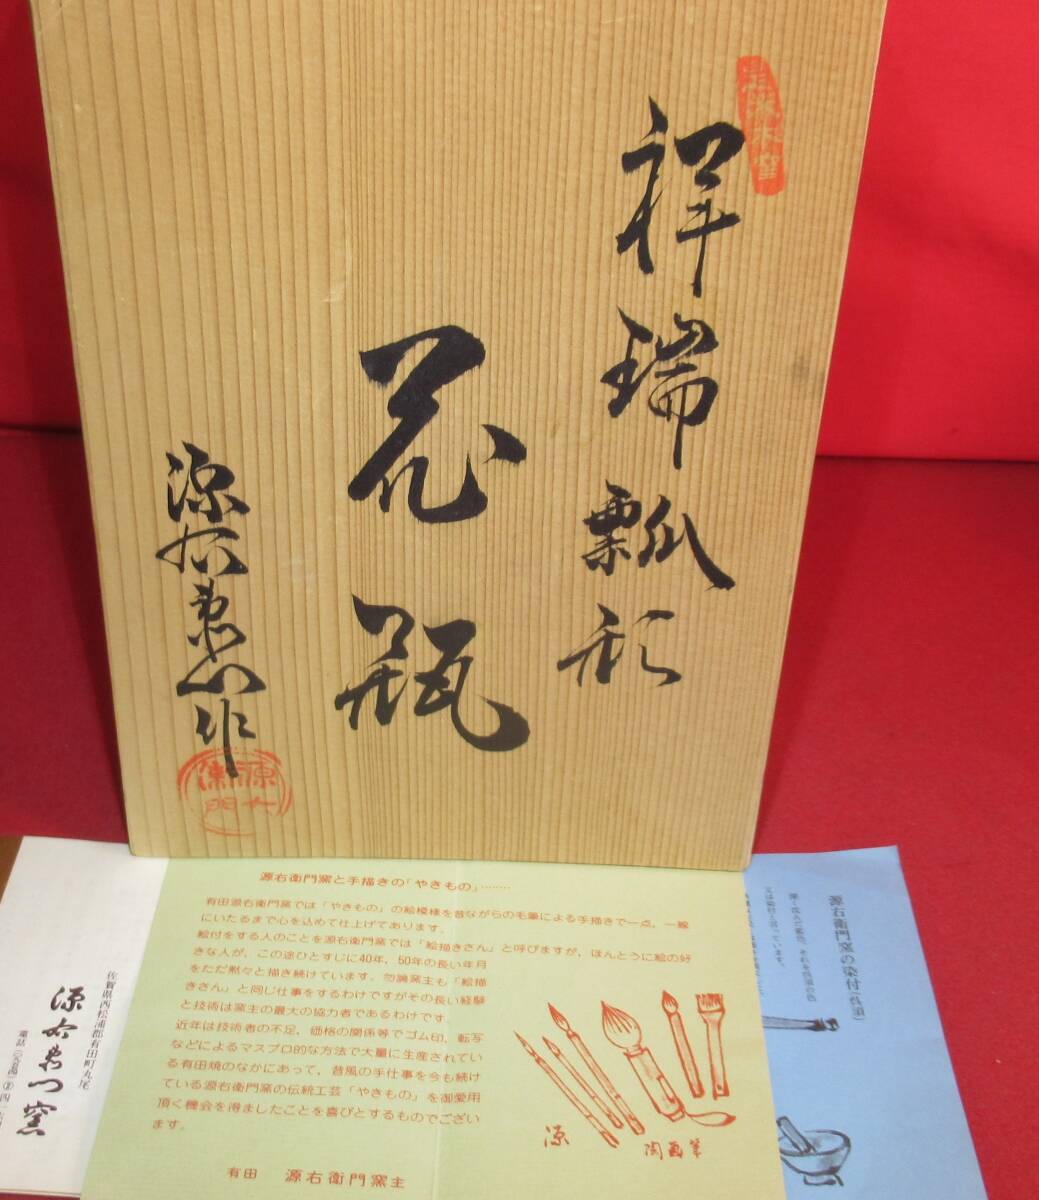 祥瑞瓢形
花瓶
源右衛門作
源右衛門窯と手描きの「やきもの」………
有田源右衛門窯では「やきもの」の絵模様を昔ながらの毛筆による手描きで一点、一線
にいたるまで心を込めて仕上げてあります。
絵付をする人のことを源右衛門窯では「絵描きさん」と呼びますが、ほんとうに絵の好
きな人が、この途ひとすじに40年、50年の長い年月
をただ黙々と描き続けています。勿論窯主も「絵描
きさん」と同じ仕事をするわけですがその長い経験
と技術は窯主の最大の協力者であるわけです。
近年は技術者の不足、価格の関係等でゴム印、転写
などによるマスプロ的な方法で大量に生産されてい
る有田焼のなかにあって、昔風の手仕事を今も続け
ている源右衛門窯の伝統工芸「やきもの」を御愛用
頂く機会を得ましたことを喜びとするものでござい
ます。
有田 源右衛門窯主
源
陶画筆
源右衛門窯の染付(呉須)
又は染付と言っています。
佐賀県西松浦郡有田町丸尾
源右衛門窯